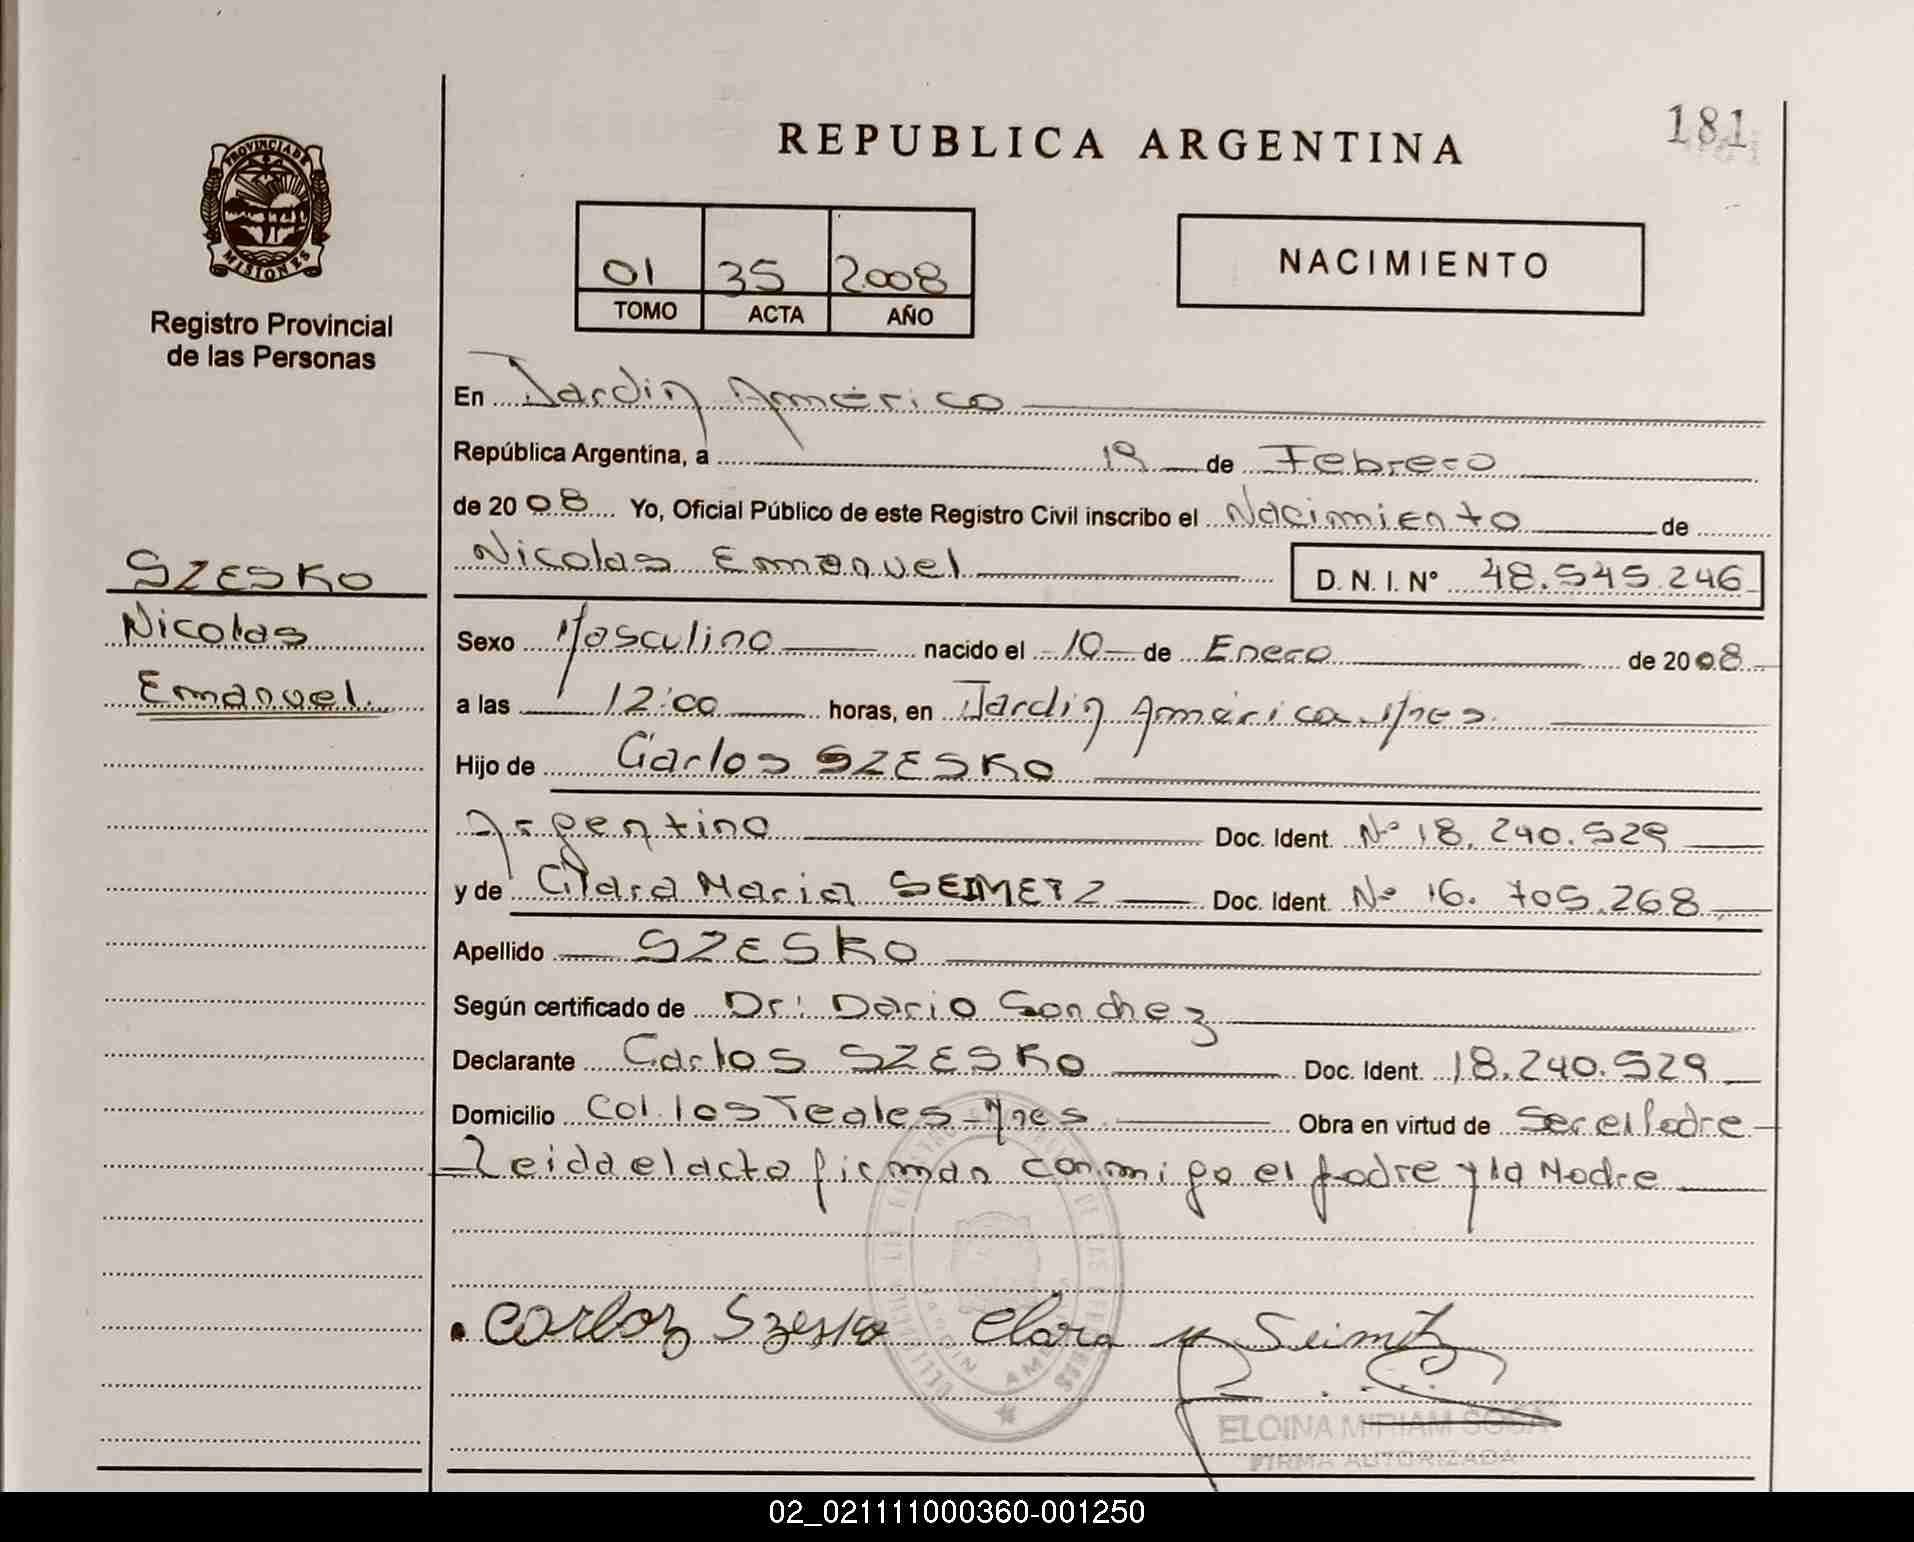 181
REPUBLICA ARGENTINA
PROVINCIA DE
MISIONES
Registro Provincial
de las Personas
01 35 2008
TOMO ACTA AÑO
NACIMIENTO
En Jardin América
República Argentina, a 19 de Febrero
de 2008 Yo, Oficial Público de este Registro Civil inscribo el Nacimiento de
Nicolas Emanuel D. N. I. N° 48.545.246
SZESKO
Nicolas
Emanuel.
Sexo Masculino nacido el 10 de Enero de 2008
a las 12:00 horas, en Jardin América Mnes.
Hijo de Carlos SZESKO
Argentino Doc. Ident. N° 18.240.529
y de Clara Maria SEIMETZ Doc. Ident. N° 16.705.268
Apellido SZESKO
Según certificado de Dr: Dario Sanchez
Declarante Carlos SZESKO Doc. Ident. 18.240.529
Domicilio Col. los Teales Mnes Obra en virtud de Ser el Padre
Leida el acta firman conmigo el padre y la Madre
Carloz Szesko Clara M Seimetz
ELOINA MIRIAM SOSA
FIRMA AUTORIZADA
02_021111000360-001250